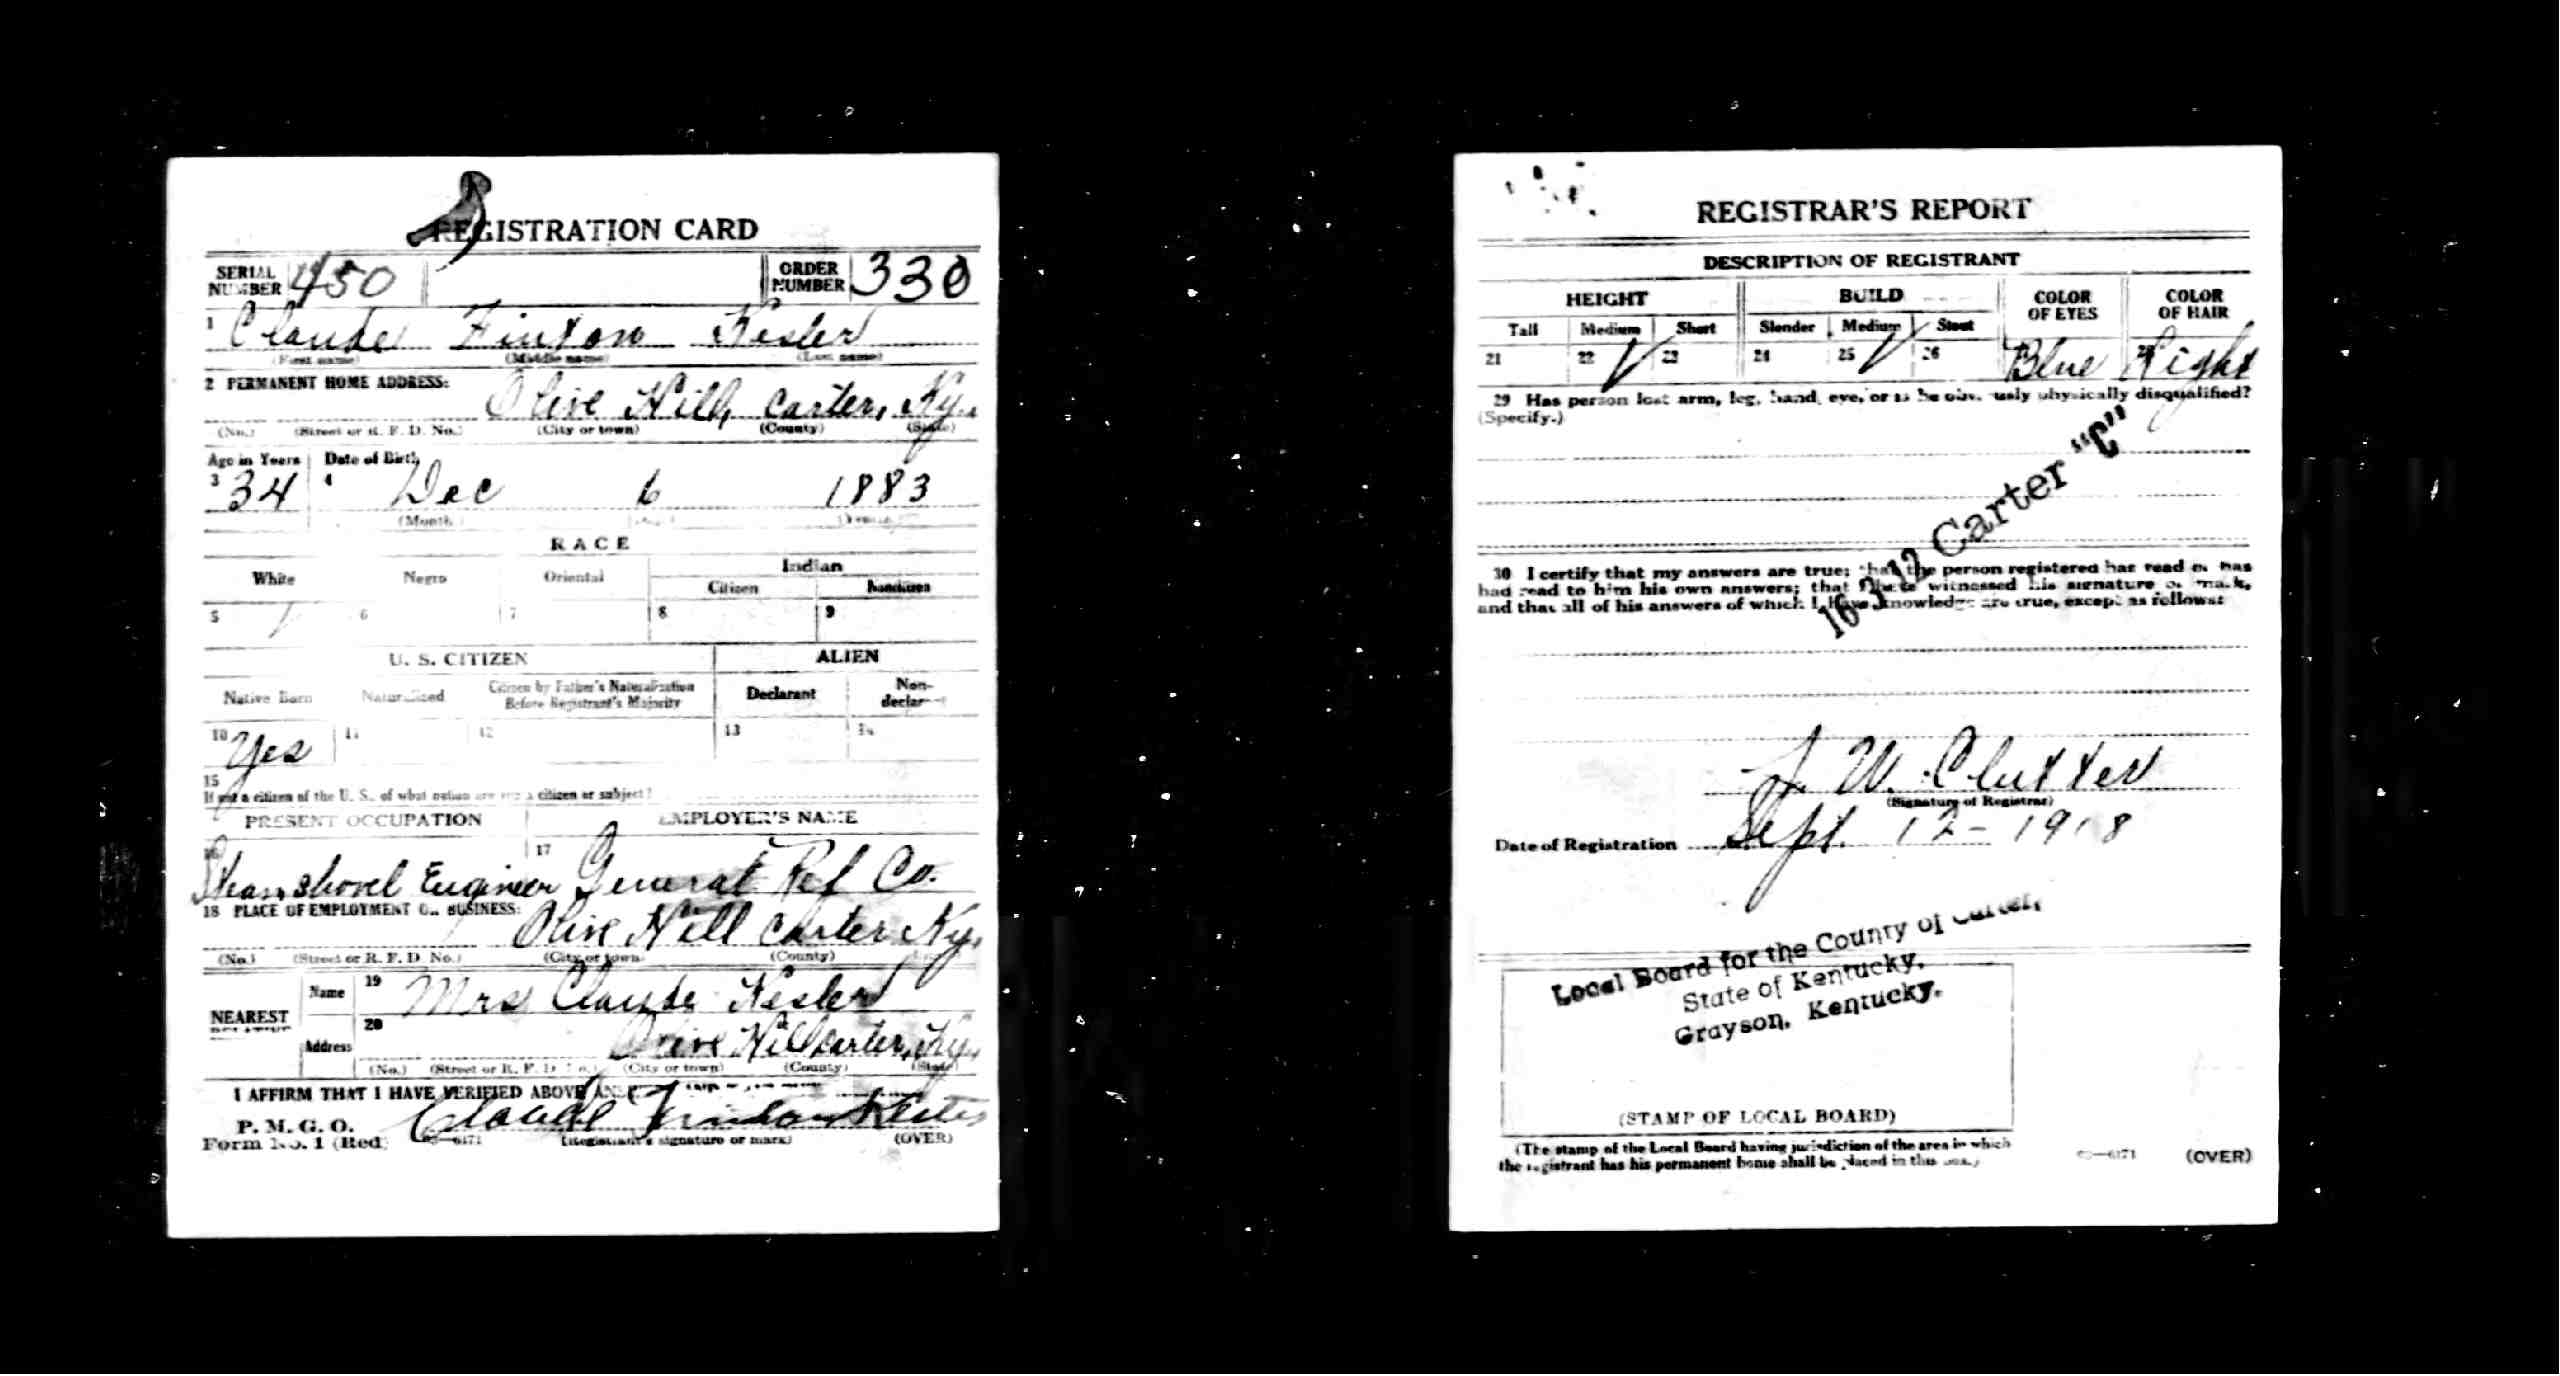 REGISTRATION CARD
SERIAL NUMBER 450 ORDER NUMBER 330
1 Claude Finton Kesler
(First name) (Middle name) (Last name)
2 PERMANENT HOME ADDRESS:
Olive Hill, Carter, Ky.
(No.) (Street or R. F. D. No.) (City or town) (County) (State)
Age in Years Date of Birth
3 34 4 Dec 6 1883
(Month)
RACE
White Negro Oriental Indian
Citizen Noncitizen
5 / 6 7 8 9
U. S. CITIZEN ALIEN
Native Born Naturalized Citizen by Father's Naturalization Before Registrant's Majority Declarant Non-declarant
10 Yes 11 12 13 14
15
If not a citizen of the U. S., of what nation are you a citizen or subject?
PRESENT OCCUPATION EMPLOYER'S NAME
16 Steam shovel Engineer 17 General Ref Co.
18 PLACE OF EMPLOYMENT OR BUSINESS:
Olive Hill Carter Ky.
(No.) (Street or R. F. D. No.) (City or town) (County)
NEAREST RELATIVE Name 19 Mrs Claude Kesler
Address 20 Olive Hill Carter, Ky.
(No.) (Street or R. F. D. No.) (City or town) (County) (State)
I AFFIRM THAT I HAVE VERIFIED ABOVE
P. M. G. O.
Form No. 1 (Red) Claude Finton
(Registrant's signature or mark) (OVER)
REGISTRAR'S REPORT
DESCRIPTION OF REGISTRANT
HEIGHT BUILD COLOR OF EYES COLOR OF HAIR
Tall Medium Short Slender Medium Stout
21 22 ✓ 23 24 25 ✓ 26 Blue Light
29 Has person lost arm, leg, hand, eye, or is he obviously physically disqualified?
(Specify.)
16 3 12 Carter "C"
30 I certify that my answers are true; that the person registered has read or has
had read to him his own answers; that I have witnessed his signature or mark,
and that all of his answers of which I have knowledge are true, except as follows:
J. W. Clutter
(Signature of Registrar)
Date of Registration Sept. 12 - 1918
Local Board for the County of Carter,
State of Kentucky,
Grayson, Kentucky.
(STAMP OF LOCAL BOARD)
(The stamp of the Local Board having jurisdiction of the area in which
the registrant has his permanent home shall be placed in this box.)
(OVER)